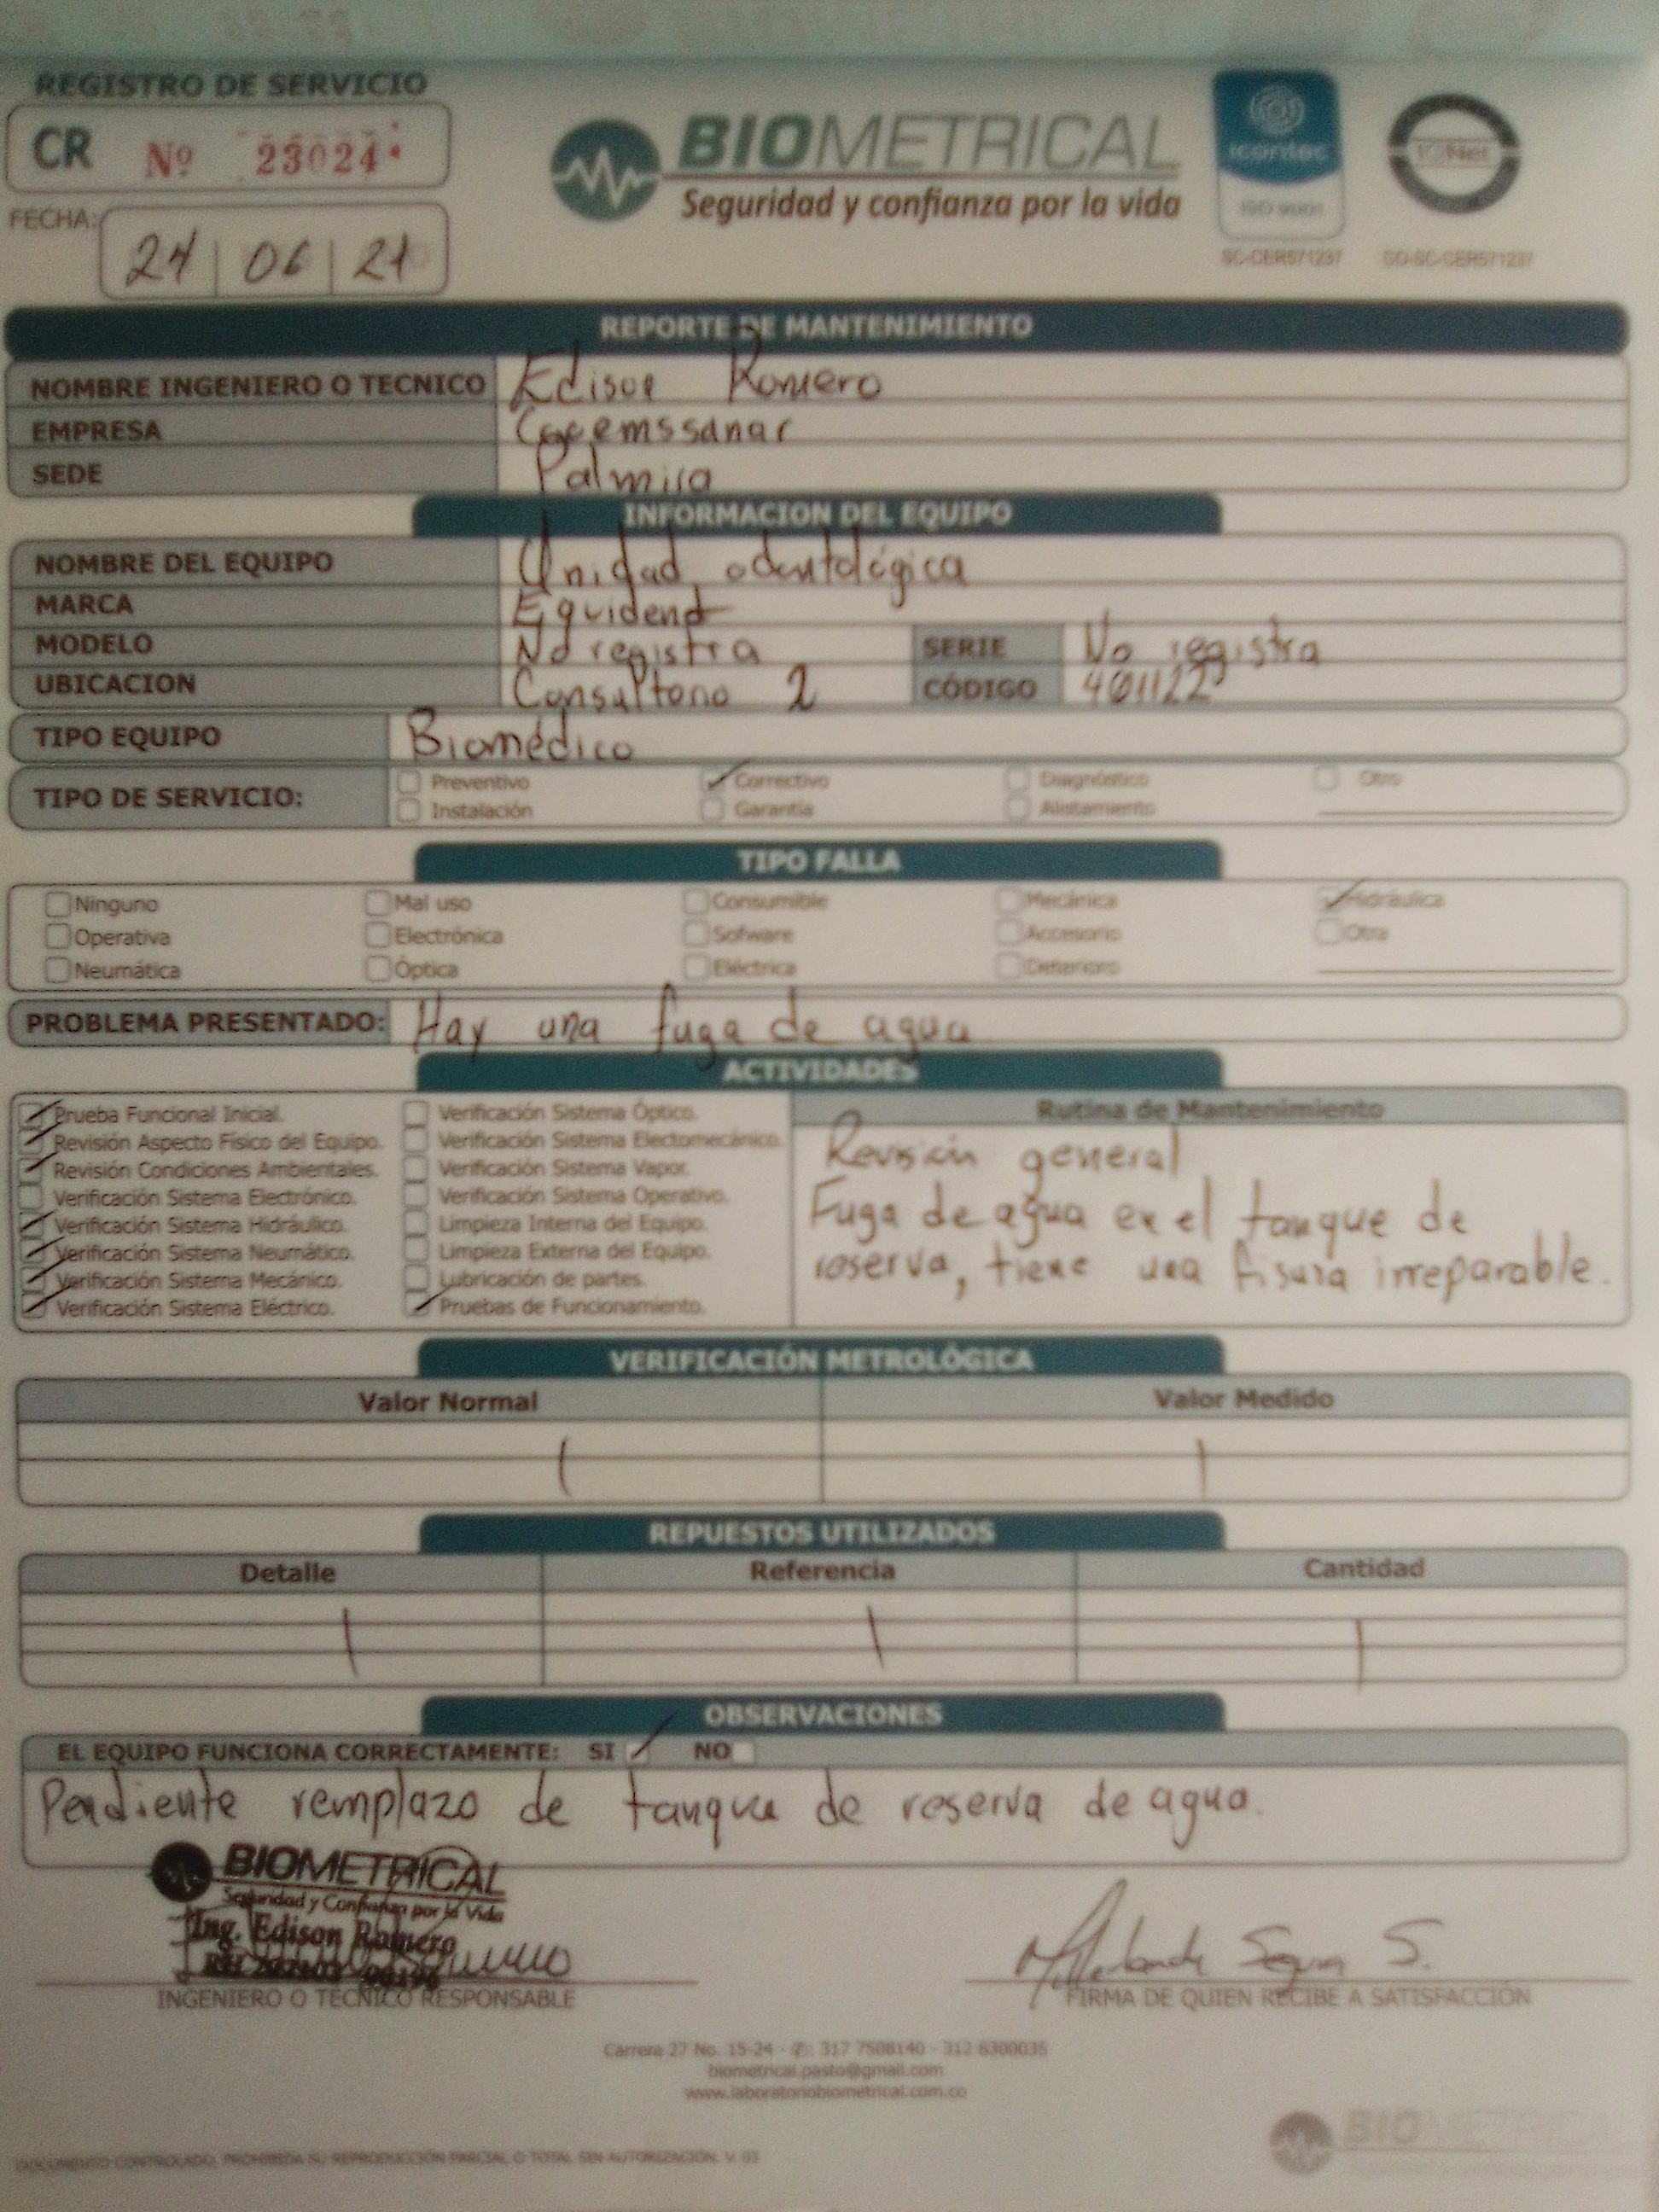 REGISTRO DE SERVICIO
CR Nº 23024
BIOMETRICAL
Seguridad y confianza por la vida
icontec
ISO 9001
SC-CER571237
IQNet
CO-SC-CER571237
FECHA: 24 | 06 | 21
REPORTE DE MANTENIMIENTO
NOMBRE INGENIERO O TECNICO Edison Romero
EMPRESA
SEDE Palmira
INFORMACION DEL EQUIPO
NOMBRE DEL EQUIPO Unidad odontológica
MARCA Equident
MODELO No registra SERIE No registra
UBICACION Consultorio 2 CÓDIGO
TIPO EQUIPO Biomédico
TIPO DE SERVICIO: Preventivo Correctivo Diagnóstico Otro
Instalación Garantía Alistamiento
TIPO FALLA
Ninguno Mal uso Consumible Mecánica Hidráulica
Operativa Electrónica Sofware Accesorio Otra
Neumática Óptica Eléctrica Deterioro
PROBLEMA PRESENTADO: Hay una fuga de agua
ACTIVIDADES
Prueba Funcional Inicial. Verificación Sistema Óptico.
Revisión Aspecto Físico del Equipo. Verificación Sistema Electomecánico.
Revisión Condiciones Ambientales. Verificación Sistema Vapor.
Verificación Sistema Electrónico. Verificación Sistema Operativo.
Verificación Sistema Hidráulico. Limpieza Interna del Equipo.
Verificación Sistema Neumático. Limpieza Externa del Equipo.
Verificación Sistema Mecánico. Lubricación de partes.
Verificación Sistema Eléctrico. Pruebas de Funcionamiento.
Rutina de Mantenimiento
Revisión general
Fuga de agua en el tanque de
reserva, tiene una fisura irreparable.
VERIFICACIÓN METROLÓGICA
Valor Normal Valor Medido
REPUESTOS UTILIZADOS
Detalle Referencia Cantidad
OBSERVACIONES
EL EQUIPO FUNCIONA CORRECTAMENTE: SI NO
Pendiente remplazo de tanque de reserva de agua.
BIOMETRICAL
Seguridad y Confianza por la Vida
Ing. Edison Romero
INGENIERO O TÉCNICO RESPONSABLE
FIRMA DE QUIEN RECIBE A SATISFACCIÓN
Carrera 27 No. 15-24 - ✆: 317 7508140 - 312 6300035
biometrical.pasto@gmail.com
www.laboratoriobiometrical.com.co
BIOMETRICAL
DOCUMENTO CONTROLADO, PROHIBIDA SU REPRODUCCIÓN PARCIAL O TOTAL SIN AUTORIZACIÓN. V. 03